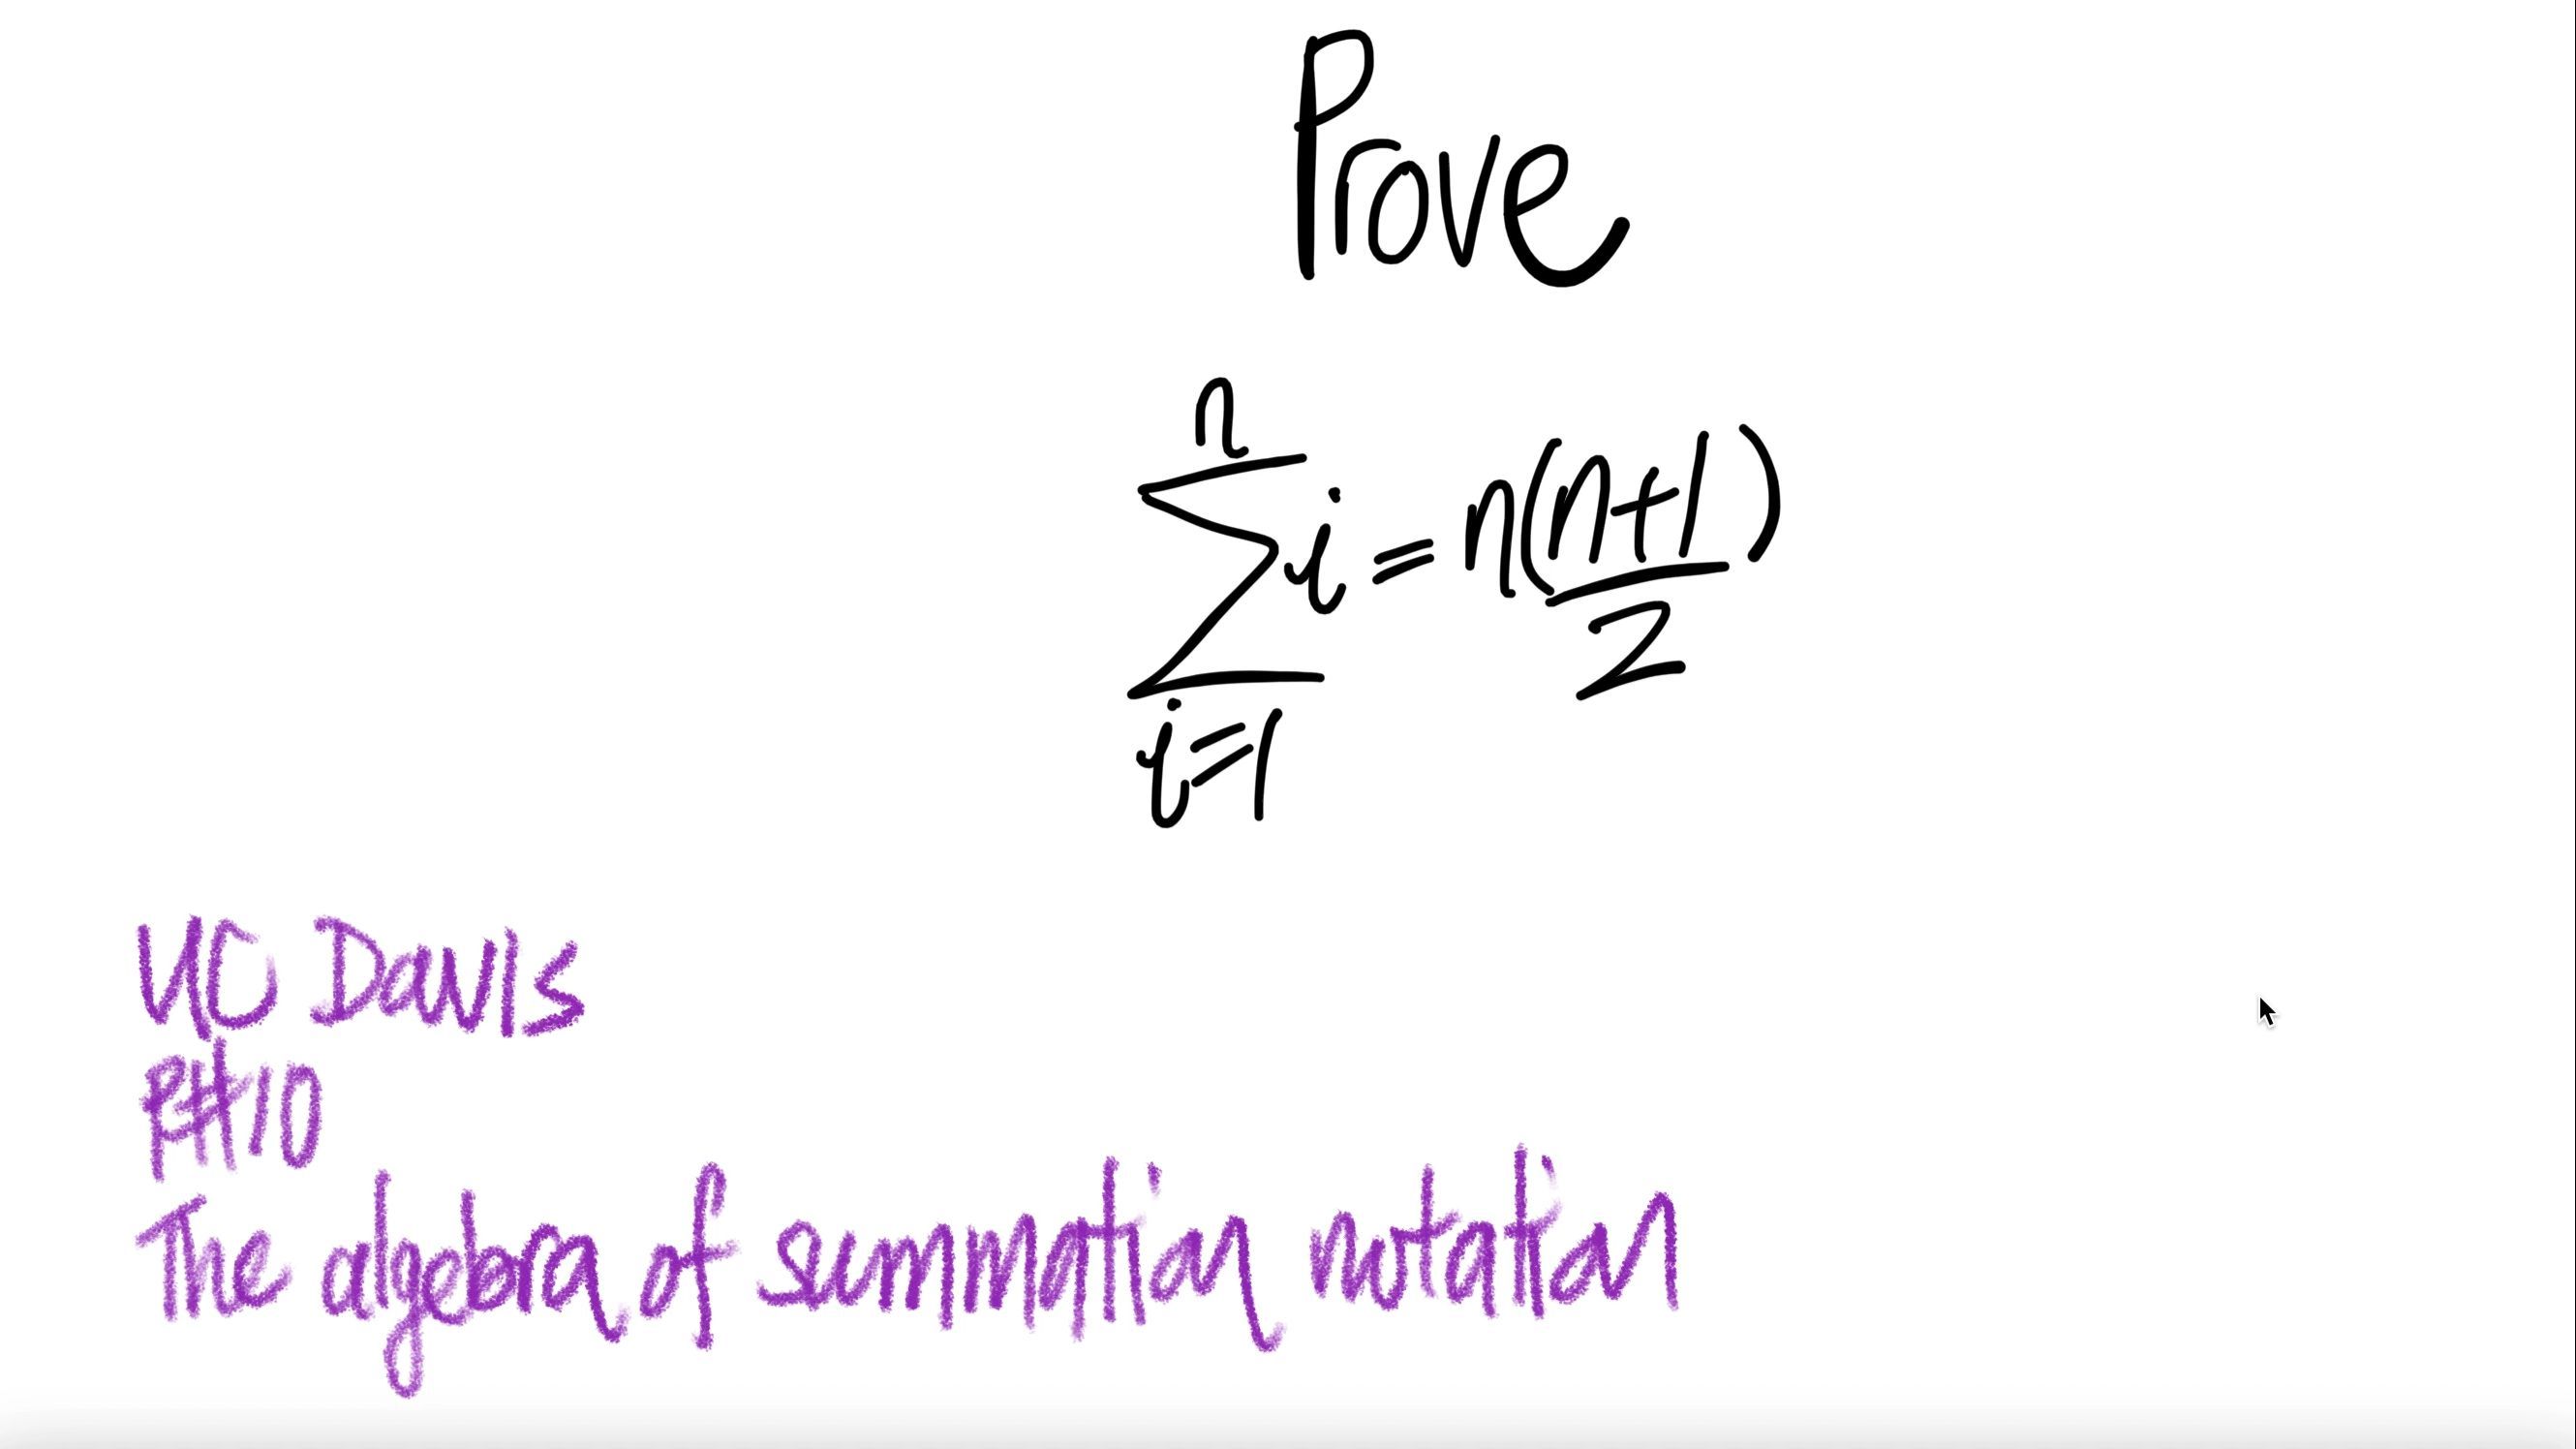 Prove
n
∑ i = n(n+1)
2
i=1
UC Davis
P#10
The algebra of summation notation